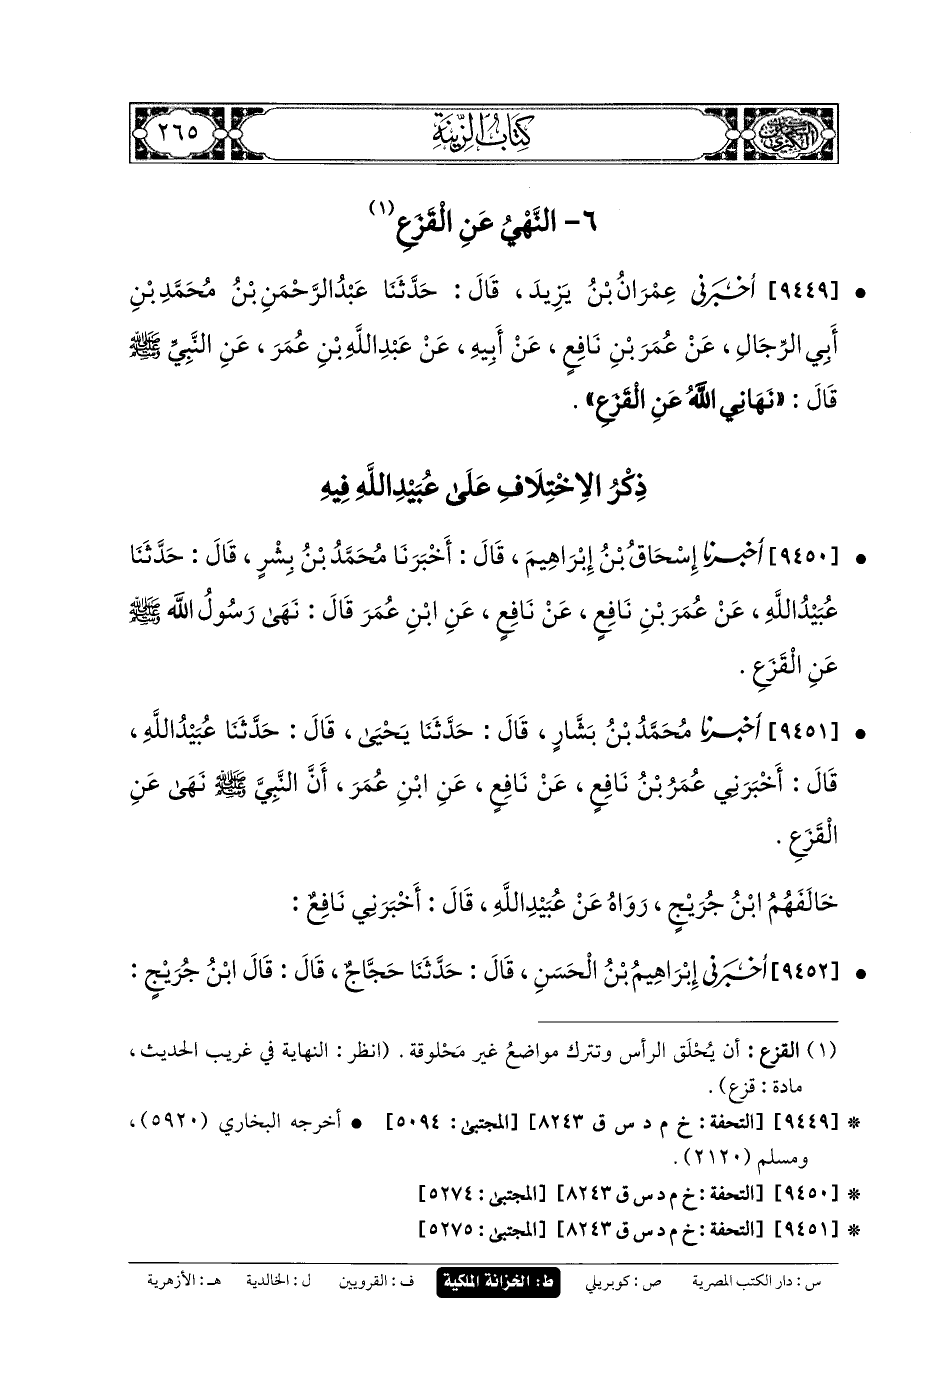 السنن الكبرى
كتاب الزينة
٢٦٥
٦- النَّهْيُ عَنِ الْقَزَعِ (١)
• [٩٤٤٩] أَخْبَرَنِي عِمْرَانُ بْنُ يَزِيدَ، قَالَ: حَدَّثَنَا عَبْدُ الرَّحْمَنِ بْنُ مُحَمَّدِ بْنِ
أَبِي الرِّجَالِ، عَنْ عُمَرَ بْنِ نَافِعٍ، عَنْ أَبِيهِ، عَنْ عَبْدِ اللَّهِ بْنِ عُمَرَ، عَنِ النَّبِيِّ ﷺ
قَالَ: «نَهَانِي اللَّهُ عَنِ الْقَزَعِ».
ذِكْرُ الِاخْتِلَافِ عَلَىٰ عُبَيْدِ اللَّهِ فِيهِ
• [٩٤٥٠] أَخْبَرَنَا إِسْحَاقُ بْنُ إِبْرَاهِيمَ، قَالَ: أَخْبَرَنَا مُحَمَّدُ بْنُ بِشْرٍ، قَالَ: حَدَّثَنَا
عُبَيْدُ اللَّهِ، عَنْ عُمَرَ بْنِ نَافِعٍ، عَنْ نَافِعٍ، عَنِ ابْنِ عُمَرَ قَالَ: نَهَىٰ رَسُولُ اللَّهِ ﷺ
عَنِ الْقَزَعِ.
• [٩٤٥١] أَخْبَرَنَا مُحَمَّدُ بْنُ بَشَّارٍ، قَالَ: حَدَّثَنَا يَحْيَىٰ، قَالَ: حَدَّثَنَا عُبَيْدُ اللَّهِ،
قَالَ: أَخْبَرَنِي عُمَرُ بْنُ نَافِعٍ، عَنْ نَافِعٍ، عَنِ ابْنِ عُمَرَ، أَنَّ النَّبِيَّ ﷺ نَهَىٰ عَنِ
الْقَزَعِ.
خَالَفَهُمُ ابْنُ جُرَيْجٍ، رَوَاهُ عَنْ عُبَيْدِ اللَّهِ، قَالَ: أَخْبَرَنِي نَافِعٌ:
• [٩٤٥٢] أَخْبَرَنِي إِبْرَاهِيمُ بْنُ الْحَسَنِ، قَالَ: حَدَّثَنَا حَجَّاجٌ، قَالَ: قَالَ ابْنُ جُرَيْجٍ:
(١) القزع: أن يُحْلَق الرأس وتترك مواضعُ غير مَحْلوقة. (انظر: النهاية في غريب الحديث،
مادة: قزع).
* [٩٤٤٩] [التحفة: خ م د س ق ٨٢٤٣] [المجتبىٰ: ٥٠٩٤] • أخرجه البخاري (٥٩٢٠)،
ومسلم (٢١٢٠).
* [٩٤٥٠] [التحفة: خ م د س ق ٨٢٤٣] [المجتبىٰ: ٥٢٧٤]
* [٩٤٥١] [التحفة: خ م د س ق ٨٢٤٣] [المجتبىٰ: ٥٢٧٥]
س: دار الكتب المصرية ص: كوبريلي ط: الخزانة الملكية ف: القرويين ل: الخالدية هـ: الأزهرية